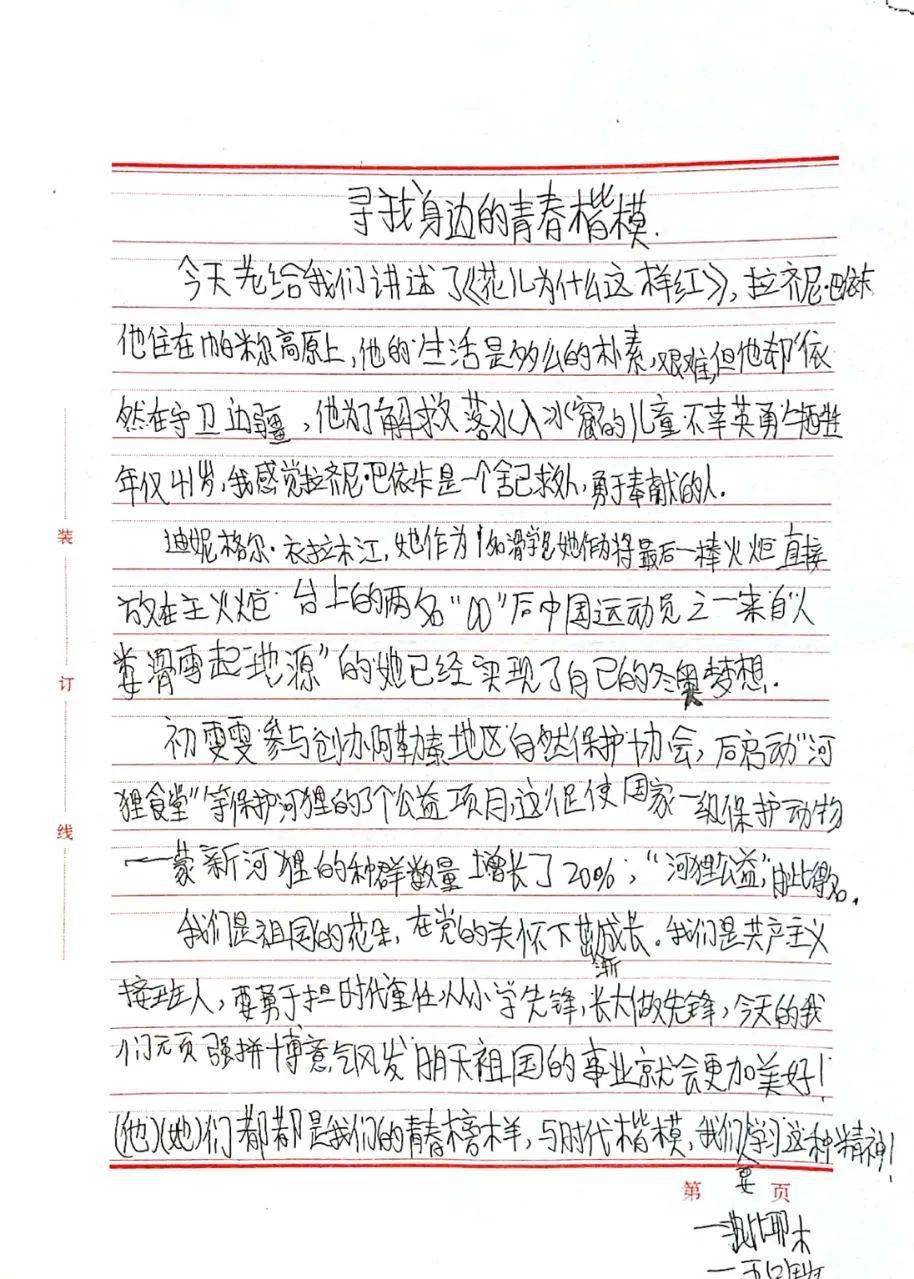 寻找身边的青春楷模.
今天老给我们讲述了《花儿为什么这样红》,拉齐尼·巴依卡
他住在帕米尔高原上,他的生活是多么的朴素,艰难,但他却依
然在守卫边疆,他为了解救落水入冰窟的儿童不幸英勇牺牲
年仅41岁,我感觉拉齐尼·巴依卡是一个舍己救外人,勇于奉献的人.
迪妮格尔·衣拉木江,她作为 她作为将最后一棒火炬直接
放在主火炬 台上的两名“00”后中国运动员之一来自“人
类滑雪起地源”的她已经实现了自己的冬奥梦想.
初雯雯参与创办阿勒泰地区自然保护协会,后启动“河
狸食堂”等保护河狸的3个公益项目,这促使国家一级保护动物
——蒙新河狸的种群数量增长了20%;“河狸公益”,由此得名.
我们是祖国的花朵,在党的关怀下茁渐成长。我们是共产主义
接班人,要勇于担时代重任从小学先锋,长大做先锋,今天的我
们元页强拼博意气风发明天祖国的事业就会更加美好!
(他)(她)们都都是我们的青春榜样,与时代楷模,我们要学习这种精神!
装
订
线
第 页